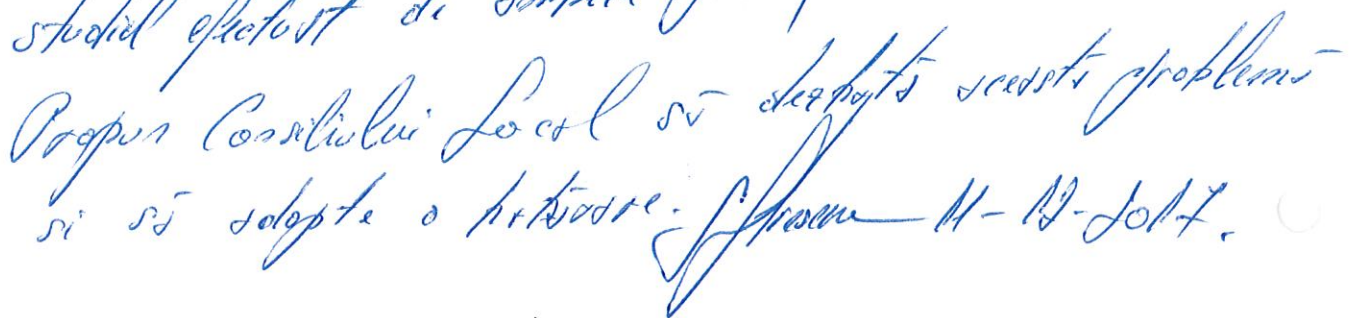 studiul efectuat de
Propun Consiliului Local să dezbată această problemă
si să adopte o hotărâre. 11-12-2017.